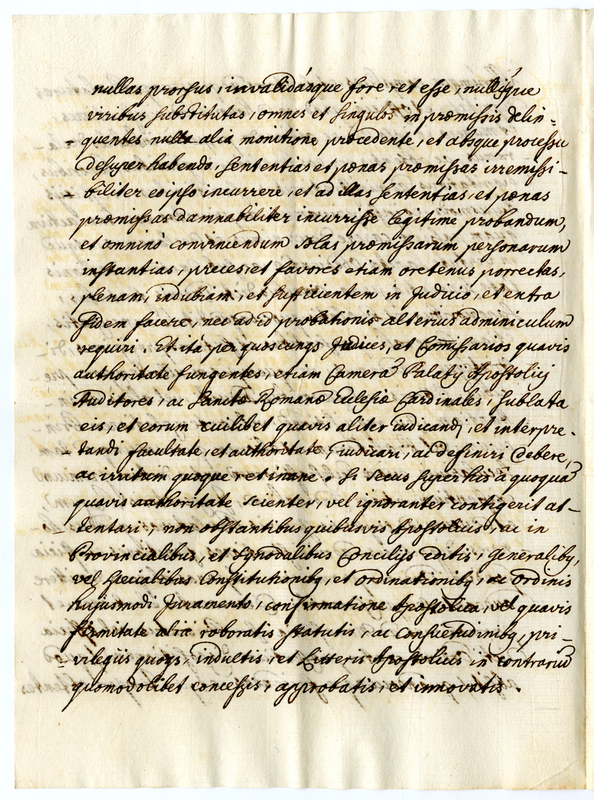 nullas prorsus, invalidasque fore, et esse, nullisque
viribus substitutas, omnes et singulos in præmissis delin=
quentes nulla alia monitione præcedente, et absque processu
desuper habendo, sententias et pœnas præmissas irremissi-
biliter eo ipso incurrere, et ad illas sententias, et pœnas
præmissas damnabiliter incurrisse legitimè probandum,
et omninò convincendum solas præmissarum personarum
instantias, preces, et favores etiam oretenus porrectas,
plenam, indubiam, et sufficientem in Judicio, et extra
fidem facere, nec ad id probationis alterius adminiculum
requiri. Et ità per quoscunqs Judices, et Comissarios quavis
authoritate fungentes, etiam Camera Palatij Apostolici
Auditores, ac Sanctæ Romanæ Eclesiæ Cardinales, sublata
eis, et eorum cuilibet quavis aliter iudicandi, et interpre-
tandi facultate, et authoritate, iudicari, ac definiri debere,
ac irritum quoque, et inane. Si secus super his à quoquã
quavis authoritate scienter, vel ignoranter contigerit at-
tentari, non obstantibus quibusvis Apostolicis, ac in
Provincialibus, et Synodalibus Concilijs editis, generalibq,
vel specialibus Constitutionibq, et ordinationibq, ac Ordinis
hujusmodi juramento, confirmatione Apostolica, vel quavis
firmitate alia roboratis statutis, ac consuetudinibq, pri-
vilegiis quoqs, indultis, et Litteris Apostolicis in contrariũ
quomodolibet concessis, approbatis, et innovatis.